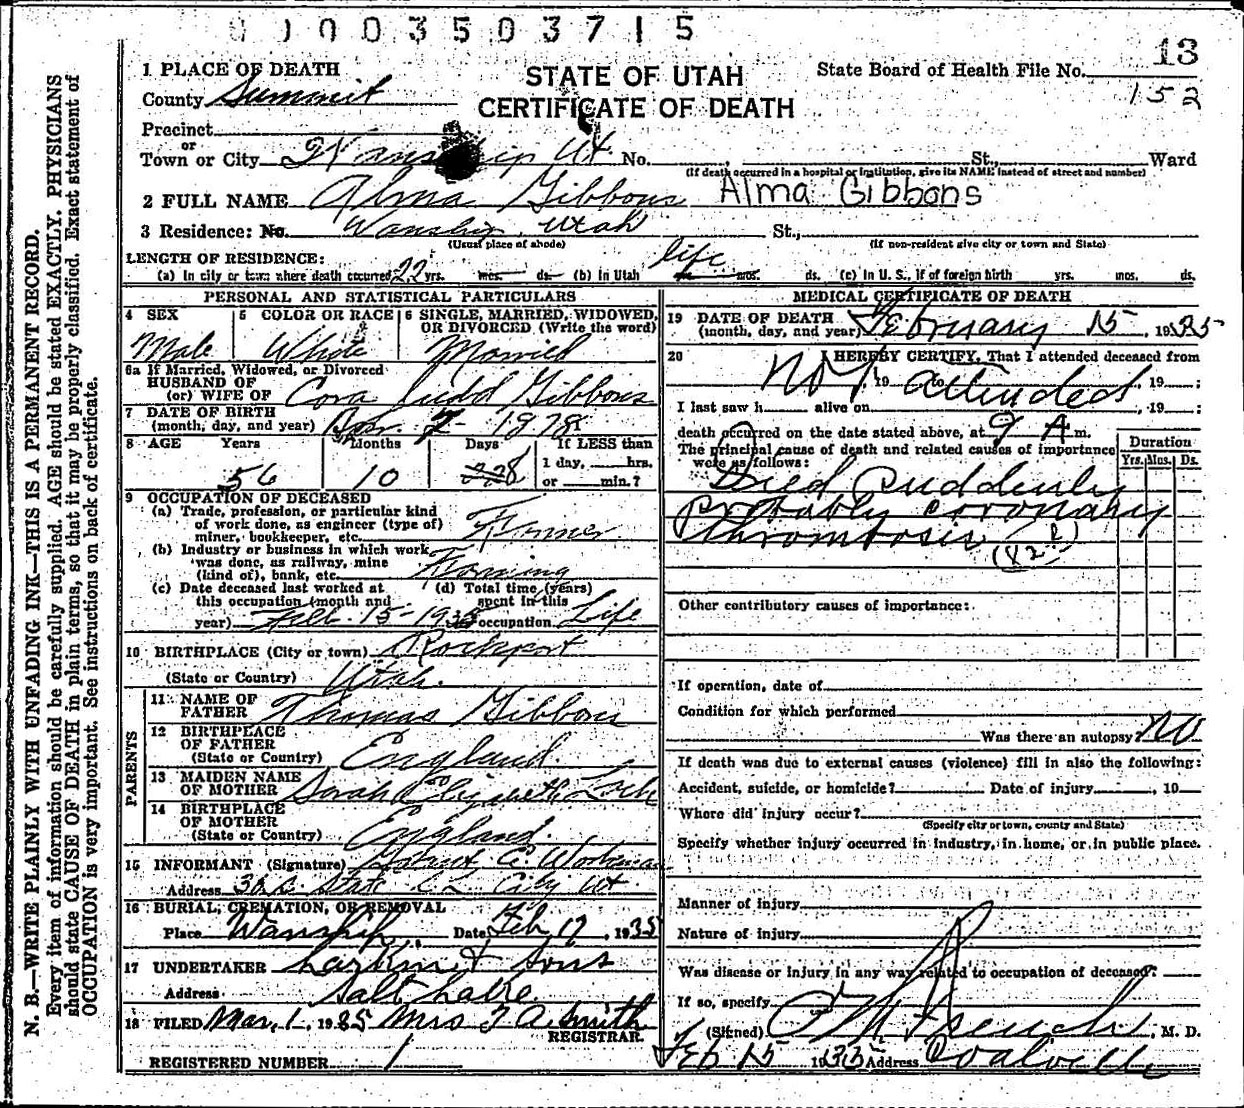 0 0 0 0 3 5 0 3 7 1 5
13
152
1 PLACE OF DEATH
STATE OF UTAH
CERTIFICATE OF DEATH
State Board of Health File No.
County Summit
Precinct
or
Town or City Wanship Ut. No. St., Ward
(If death occurred in a hospital or institution, give its NAME instead of street and number)
2 FULL NAME Alma Gibbons Alma Gibbons
3 Residence: No. Wanship, Utah St.,
(Usual place of abode) (If non-resident give city or town and State)
LENGTH OF RESIDENCE:
(a) In city or town where death occurred 22 yrs. mos. ds. (b) in Utah life mos. ds. (c) in U. S., if of foreign birth yrs. mos. ds.
PERSONAL AND STATISTICAL PARTICULARS
4 SEX
Male
5 COLOR OR RACE
White
6 SINGLE, MARRIED, WIDOWED, OR DIVORCED (Write the word)
Married
6a If Married, Widowed, or Divorced
HUSBAND OF
(or) WIFE OF Cora Judd Gibbons
7 DATE OF BIRTH
(month, day, and year) 1878
8 AGE Years Months Days If LESS than
56 10 1 day, hrs.
or min.?
9 OCCUPATION OF DECEASED
(a) Trade, profession, or particular kind
of work done, as engineer (type of)
miner, bookkeeper, etc. Farmer
(b) Industry or business in which work
was done, as railway, mine
(kind of), bank, etc. Farming
(c) Date deceased last worked at
this occupation (month and
year) Feb. 15-1935
(d) Total time (years)
spent in this
occupation Life
10 BIRTHPLACE (City or town) Rockport
(State or Country) Utah.
PARENTS
11 NAME OF
FATHER Thomas Gibbons
12 BIRTHPLACE
OF FATHER
(State or Country) England.
13 MAIDEN NAME
OF MOTHER Sarah Elizabeth
14 BIRTHPLACE
OF MOTHER
(State or Country) England.
15 INFORMANT (Signature) Workman
Address State City Ut
16 BURIAL, CREMATION, OR REMOVAL
Place Wanship. Date Feb 17, 1935
17 UNDERTAKER Larkin & Sons
Address Salt Lake.
18 FILED Mar. 1, 1935 Mrs F. A. Smith
REGISTRAR.
REGISTERED NUMBER 1
MEDICAL CERTIFICATE OF DEATH
19 DATE OF DEATH
(month, day, and year) February 15, 1935
20 I HEREBY CERTIFY, That I attended deceased from
Not, 19 to attended, 19 ;
I last saw h alive on , 19 ;
death occurred on the date stated above, at 9 A m.
The principal cause of death and related causes of importance
were as follows:
Duration
Yrs. Mos. Ds.
Died suddenly
probably coronary
thrombosis
Other contributory causes of importance:
If operation, date of
Condition for which performed
Was there an autopsy? No
If death was due to external causes (violence) fill in also the following:
Accident, suicide, or homicide? Date of injury , 19
Where did injury occur?
(Specify city or town, county and State)
Specify whether injury occurred in industry, in home, or in public place.
Manner of injury
Nature of injury
Was disease or injury in any way related to occupation of deceased?
If so, specify
(Signed) , M. D.
Feb 15 1935 Address Coalville
N. B.—WRITE PLAINLY WITH UNFADING INK—THIS IS A PERMANENT RECORD.
Every item of information should be carefully supplied. AGE should be stated EXACTLY. PHYSICIANS
should state CAUSE OF DEATH in plain terms, so that it may be properly classified. Exact statement of
OCCUPATION is very important. See instructions on back of certificate.